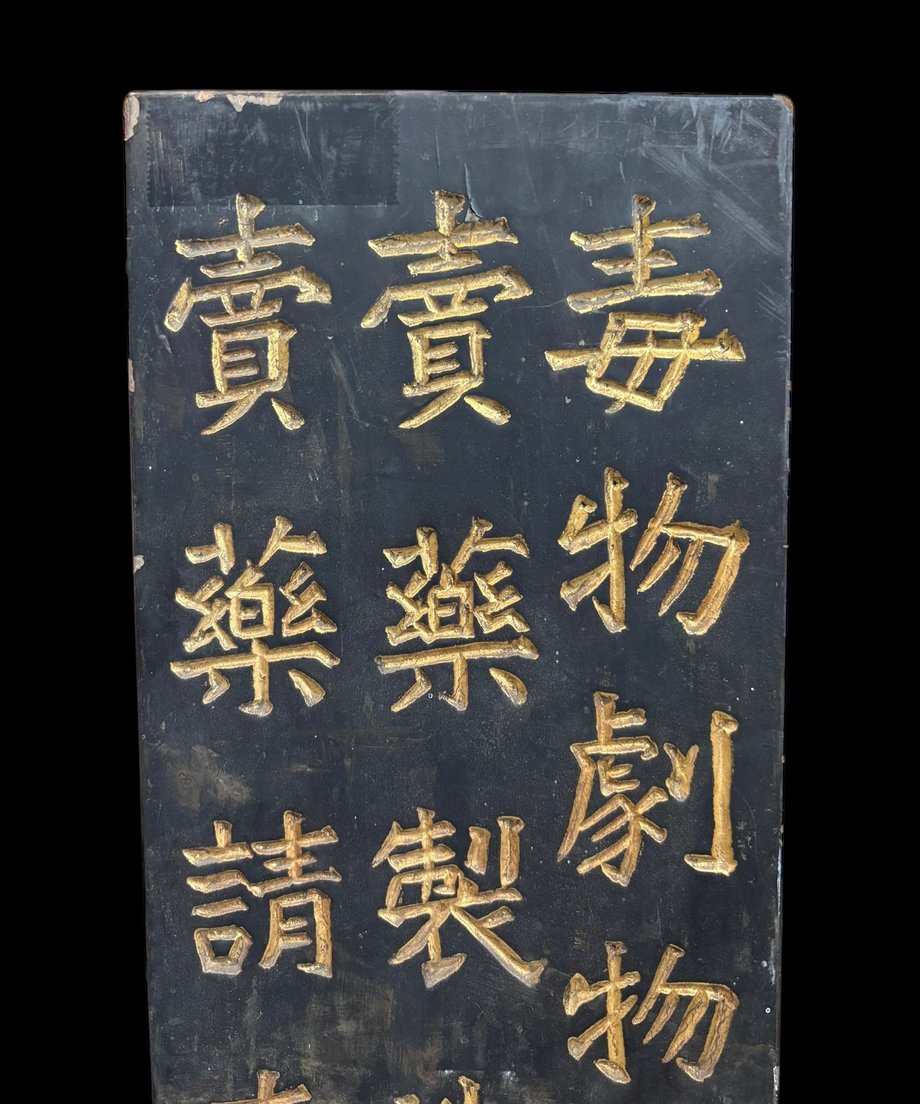 毒物劇物
賣藥製
賣藥請